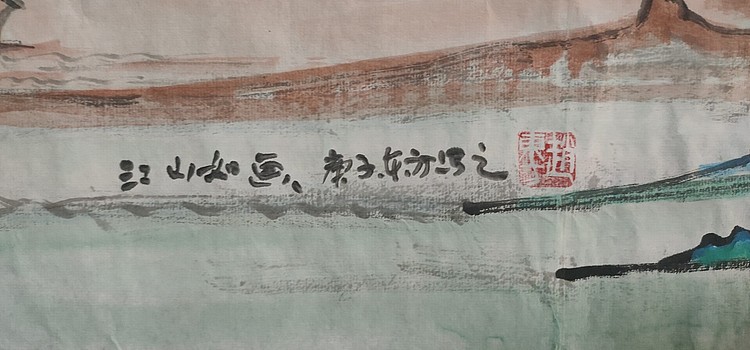 江山如画、庚子东方写之